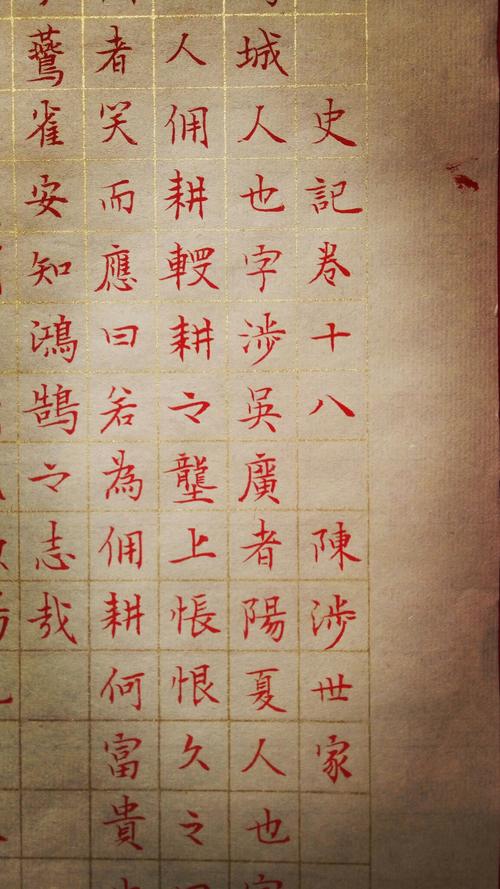 史記卷十八 陳涉世家
城人也字涉吳廣者陽夏人也字
人佣耕輟耕之壟上悵恨久之
者笑而應曰若為佣耕何富貴
鷰雀安知鴻鵠之志哉